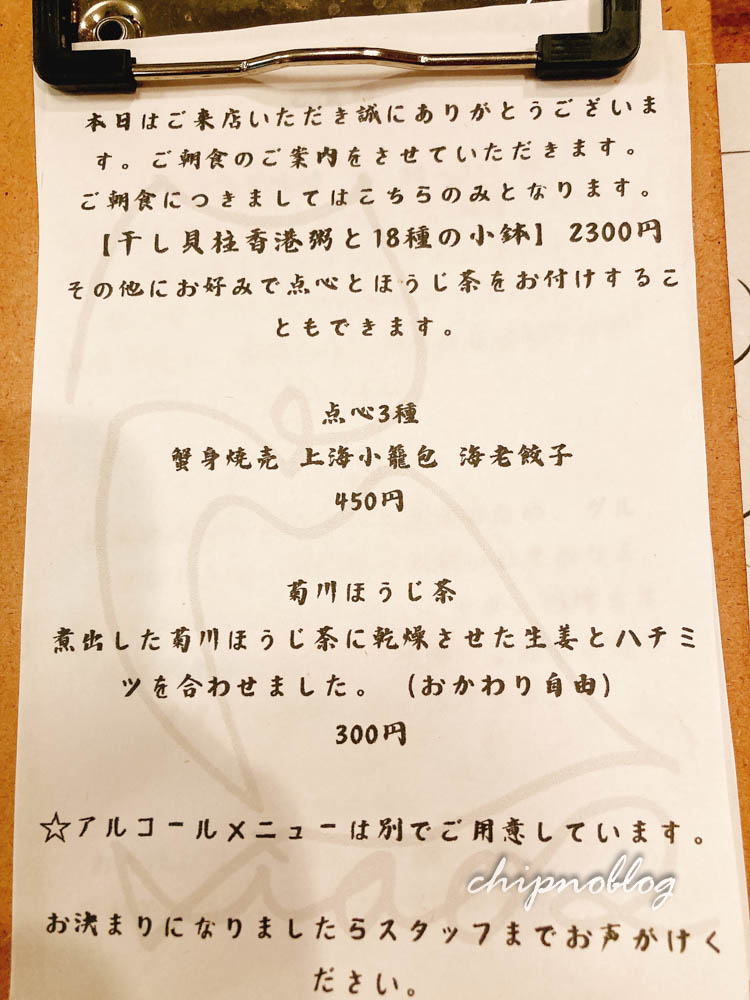 本日はご来店いただき誠にありがとうございま
す。ご朝食のご案内をさせていただきます。
ご朝食につきましてはこちらのみとなります。
【干し貝柱香港粥と18種の小鉢】 2300円
その他にお好みで点心とほうじ茶をお付けするこ
ともできます。
点心3種
蟹身焼売 上海小籠包 海老餃子
450円
菊川ほうじ茶
煮出した菊川ほうじ茶に乾燥させた生姜とハチミ
ツを合わせました。（おかわり自由）
300円
☆アルコールメニューは別でご用意しています。
chipnoblog
お決まりになりましたらスタッフまでお声がけく
ださい。